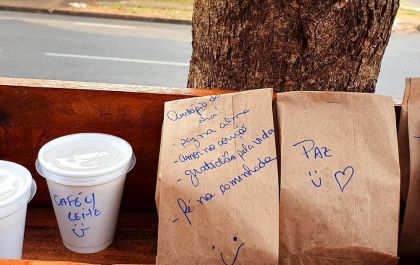 CAFÉ C/
LEITE
Cardápio do
dia:
- paz na alma
- amor no coração
- gratidão pela vida
- fé na caminhada
Paz